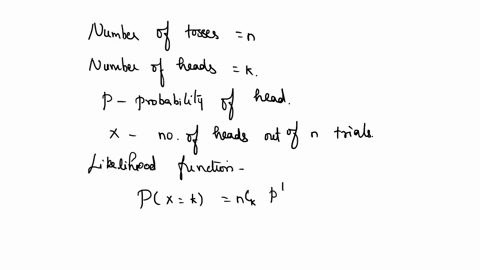 Number of tosses = n
Number of heads = k.
p - probability of head.
x - no. of heads out of n trials.
Likelihood function -
P(x = k) = nCk p'